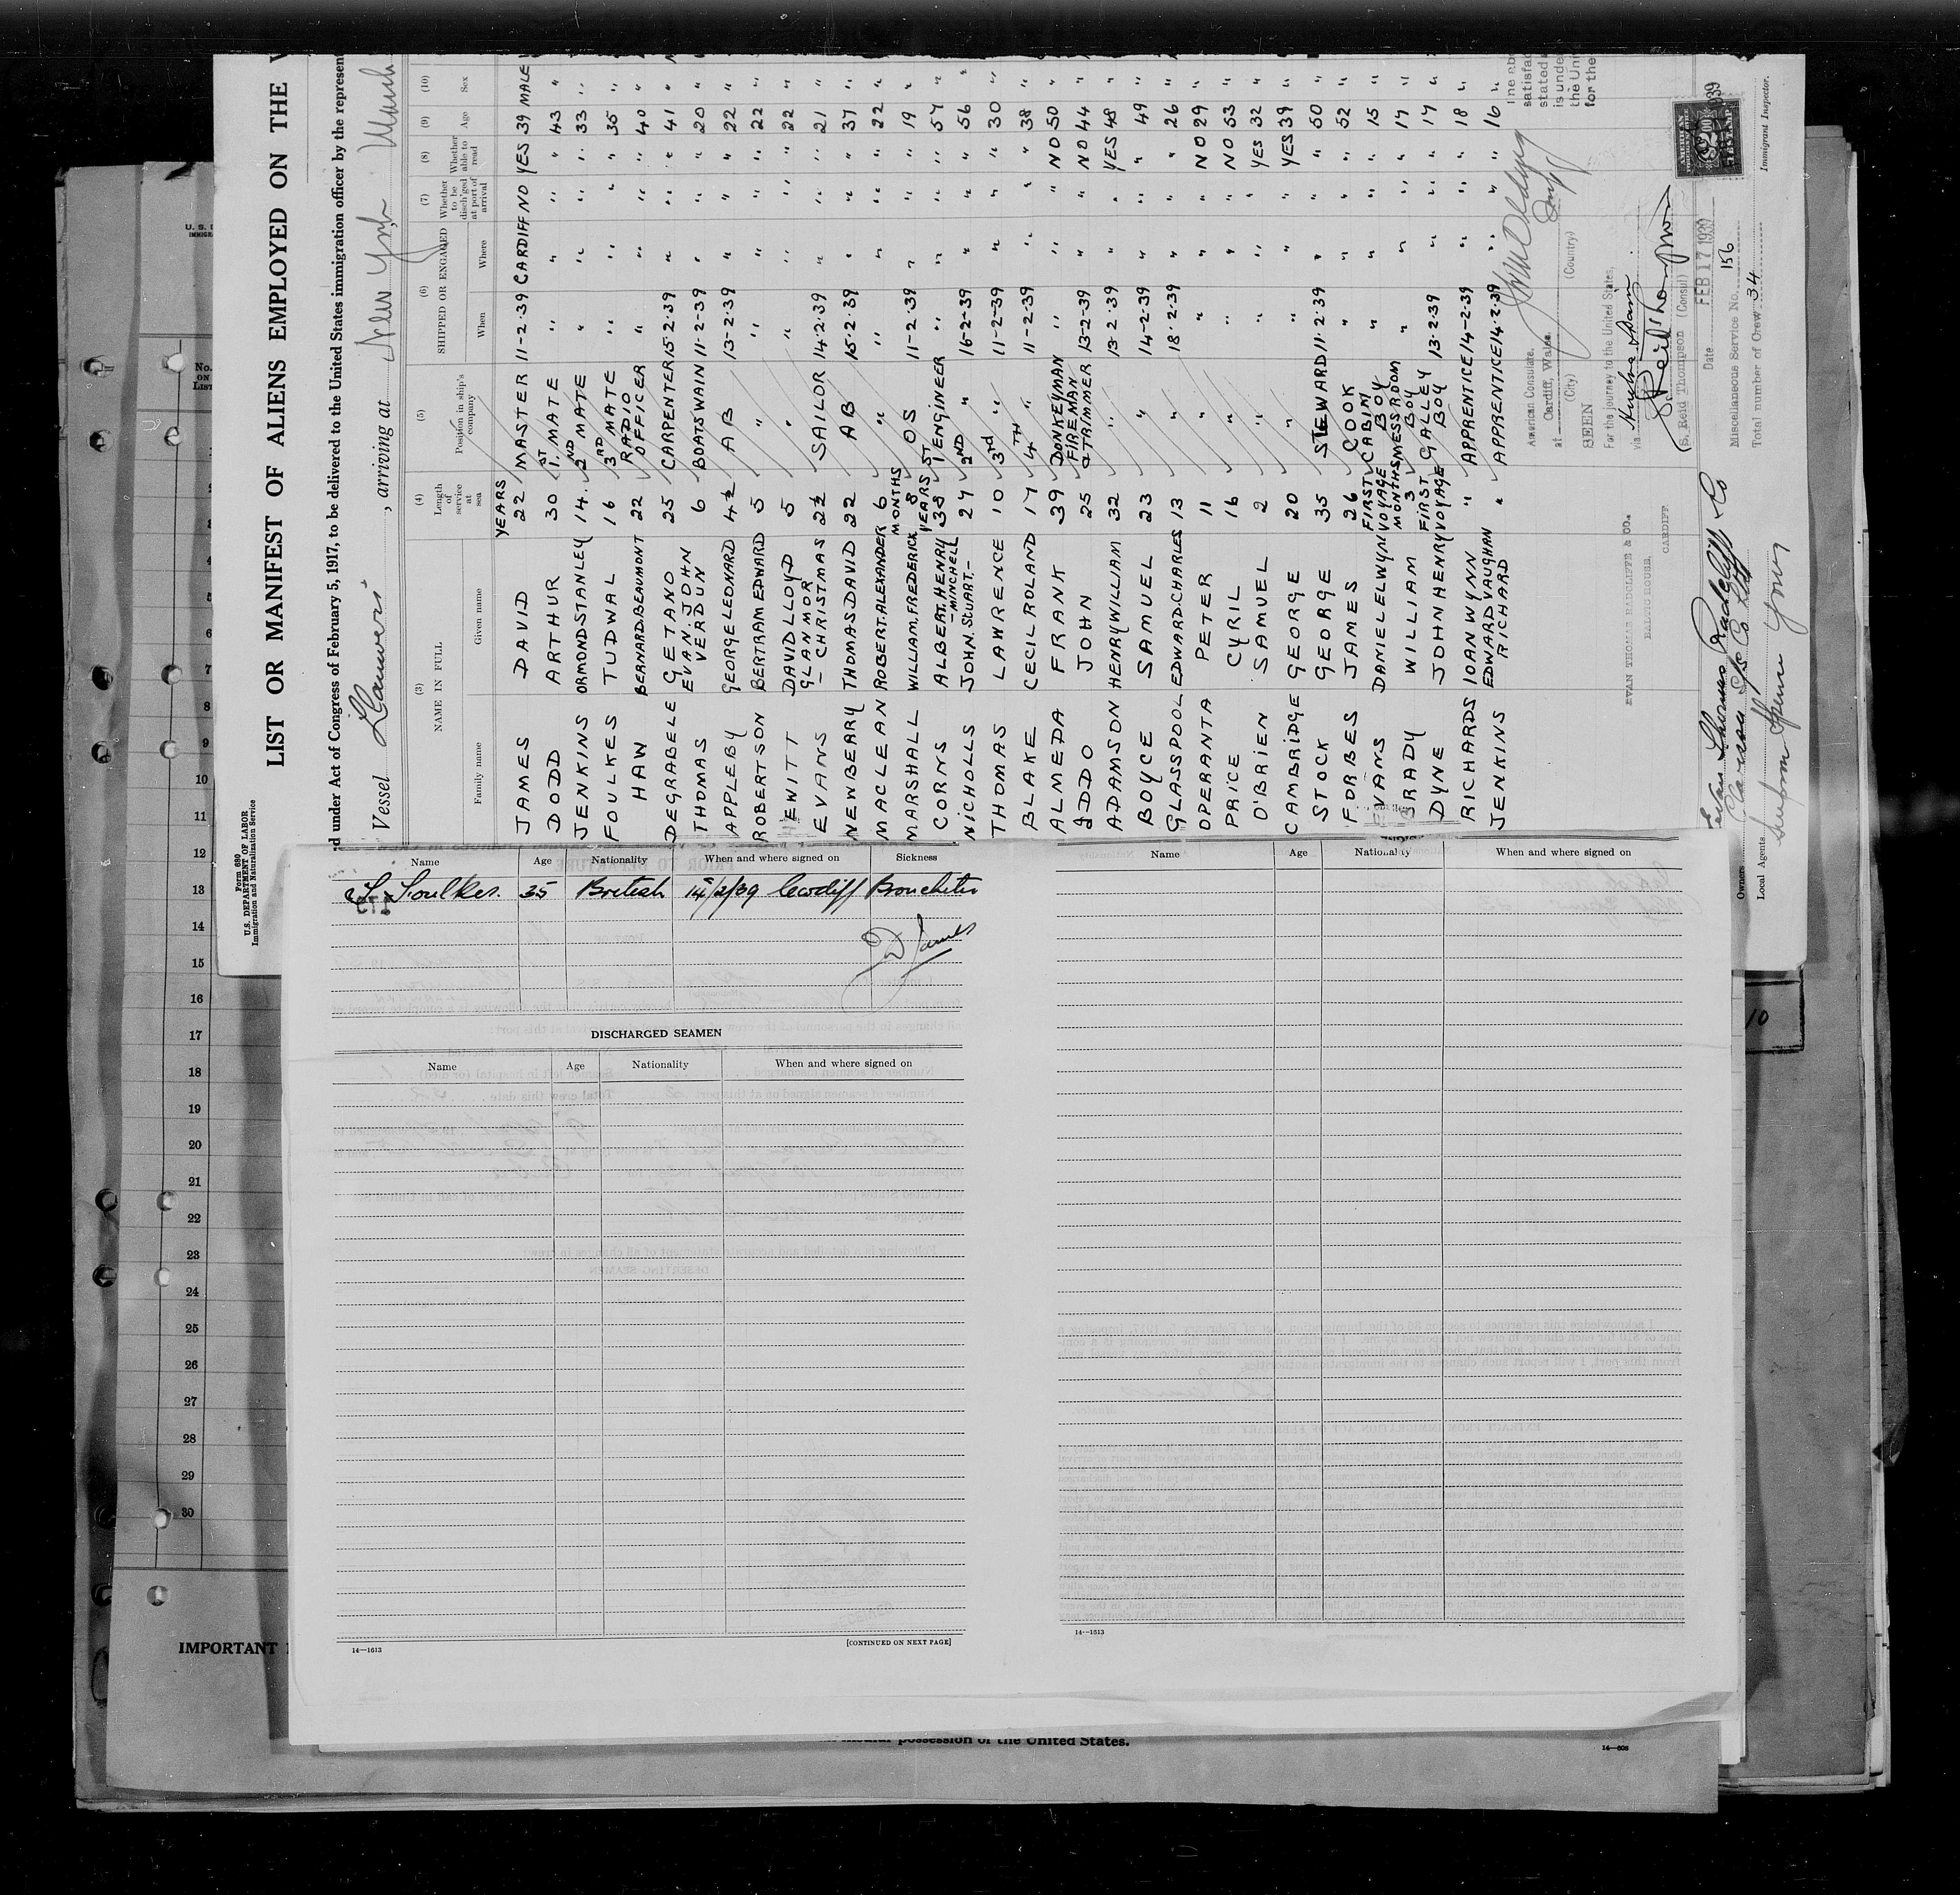 LIST OR MANIFEST OF ALIENS EMPLOYED ON THE V
d under Act of Congress of February 5, 1917, to be delivered to the United States immigration officer by the represen
Vessel Llanwern , arriving at New York March
Form 680
U.S. DEPARTMENT OF LABOR
Immigration and Naturalization Service
(3) (4) (5) (6) (7) (8) (9) (10)
NAME IN FULL Length of service at sea Position in ship's company SHIPPED OR ENGAGED Whether to be disch'ged at port of arrival Whether able to read Age Sex
Family name Given name When Where
YEARS
JAMES DAVID 22 MASTER 11-2-39 CARDIFF NO YES 39 MALE
DODD ARTHUR 30 1ST MATE " " " " 43 "
JENKINS ORMOND STANLEY 14 2ND MATE " " " " 33 "
FOULKES TUDWAL 16 3RD MATE " " " " 35 "
HAW BERNARD BEAUMONT 22 RADIO OFFICER " " " " 40 "
DEGRABELE GETANO 25 CARPENTER 15-2-39 " " " 41 "
THOMAS EVAN JOHN VERDUN 6 BOATSWAIN 11-2-39 " " " 20 "
APPLEBY GEORGE LEONARD 4½ AB 13-2-39 " " " 22 "
ROBERTSON BERTRAM EDWARD 5 " " " " " 22 "
EWITT DAVID LLOYD 5 " " " " " 22 "
EVANS GLANMOR - CHRISTMAS 2½ SAILOR 14-2-39 " " " 21 "
NEWBERRY THOMAS DAVID 22 AB 15-2-39 " " " 37 "
MACLEAN ROBERT. ALEXANDER 6 MONTHS " " " " " 22 "
MARSHALL WILLIAM. FREDERICK 8 YEARS OS 11-2-39 " " " 19 "
CORNS ALBERT. HENRY 38 1ST ENGINEER " " " " 57 "
NICHOLLS JOHN. STUART.- -MINCHELL 27 2ND " 16-2-39 " " " 56 "
THOMAS LAWRENCE 10 3rd " 11-2-39 " " " 30 "
BLAKE CECIL ROLAND 17 4TH " 11-2-39 " " " 38 "
ALMEDA FRANK 39 DONKEYMAN " " " NO 50 "
ADDO JOHN 25 FIREMAN & TRIMMER 13-2-39 " " NO 44 "
ADAMSON HENRY WILLIAM 32 " 13-2-39 " " YES 48 "
BOYCE SAMUEL 23 " 14-2-39 " " " 49 "
GLASSPOOL EDWARD CHARLES 13 " 18-2-39 " " " 26 "
OPERANTA PETER 11 " " " " NO 29 "
PRICE CYRIL 16 " " " " NO 53 "
O'BRIEN SAMUEL 2 " " " " YES 32 "
CAMBRIDGE GEORGE 20 " " " " YES 39 "
STOCK GEORGE 35 STEWARD 11-2-39 " " " 50 "
FORBES JAMES 26 COOK " " " " 52 "
EVANS DANIEL ELWYN FIRST VOYAGE CABIN BOY " " " " 15 "
GRADY WILLIAM 3 MONTHS MESSROOM BOY " " " " 17 "
DYNE JOHN HENRY FIRST VOYAGE GALLEY BOY 13-2-39 " " " 17 "
RICHARDS IOAN WYNN " APPRENTICE 14-2-39 " " " 18 "
JENKINS EDWARD VAUGHAN RICHARD " APPRENTICE 14-2-39 " " " 16 "
American Consulate,
at Cardiff, Wales.
(City) (Country)
SEEN
For the journey to the United States,
via
(S. Reid Thompson (Consul)
Date FEB 17 1939
Miscellaneous Service No. 156
Total number of Crew 34
Immigrant Inspector.
EVAN THOMAS RADCLIFFE & CO.
BALTIC HOUSE,
CARDIFF.
Owners Evan Thomas Radcliffe & Co
Local Agents
No. ON LIST
7
8
9
10
11
12
13
14
15
16
17
18
19
20
21
22
23
24
25
26
27
28
29
30
IMPORTANT
Name Age Nationality When and where signed on Sickness
T. Foulkes. 35 British 14/2/39 Cardiff Bronchitis
D James
DISCHARGED SEAMEN
Name Age Nationality When and where signed on
14—1613 [CONTINUED ON NEXT PAGE]
Name Age Nationality When and where signed on
14—1613
10
possession of the United States.
14—608